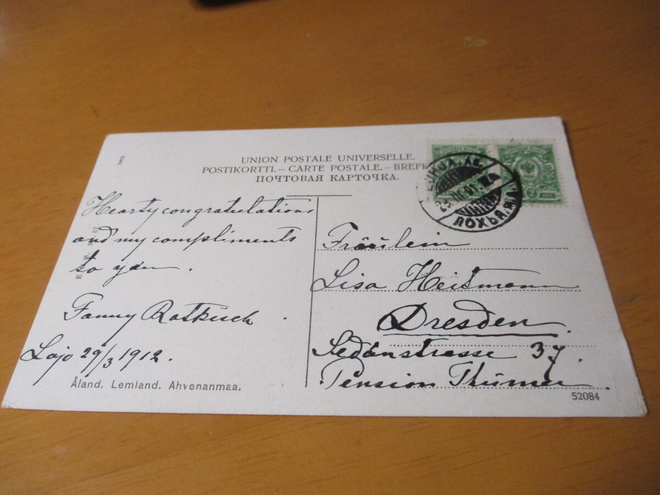 UNION POSTALE UNIVERSELLE.
POSTIKORTTI. – CARTE POSTALE. – BREFK
ПОЧТОВАЯ КАРТОЧКА.
Hearty congratulations
and my compliments
to you.
Fanny Ratkusch.
Lojo 29/3 1912.
Åland. Lemland. Ahvenanmaa.
Fräulein
Lisa Heitmann
Dresden.
Sedanstrasse 37.
Pension Thümer
52084
ЛОХЬЯ